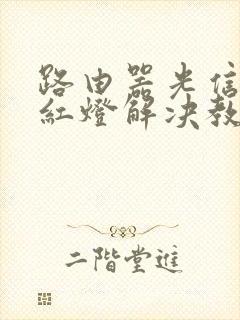 路由器光信
紅燈解决教
二階堂進